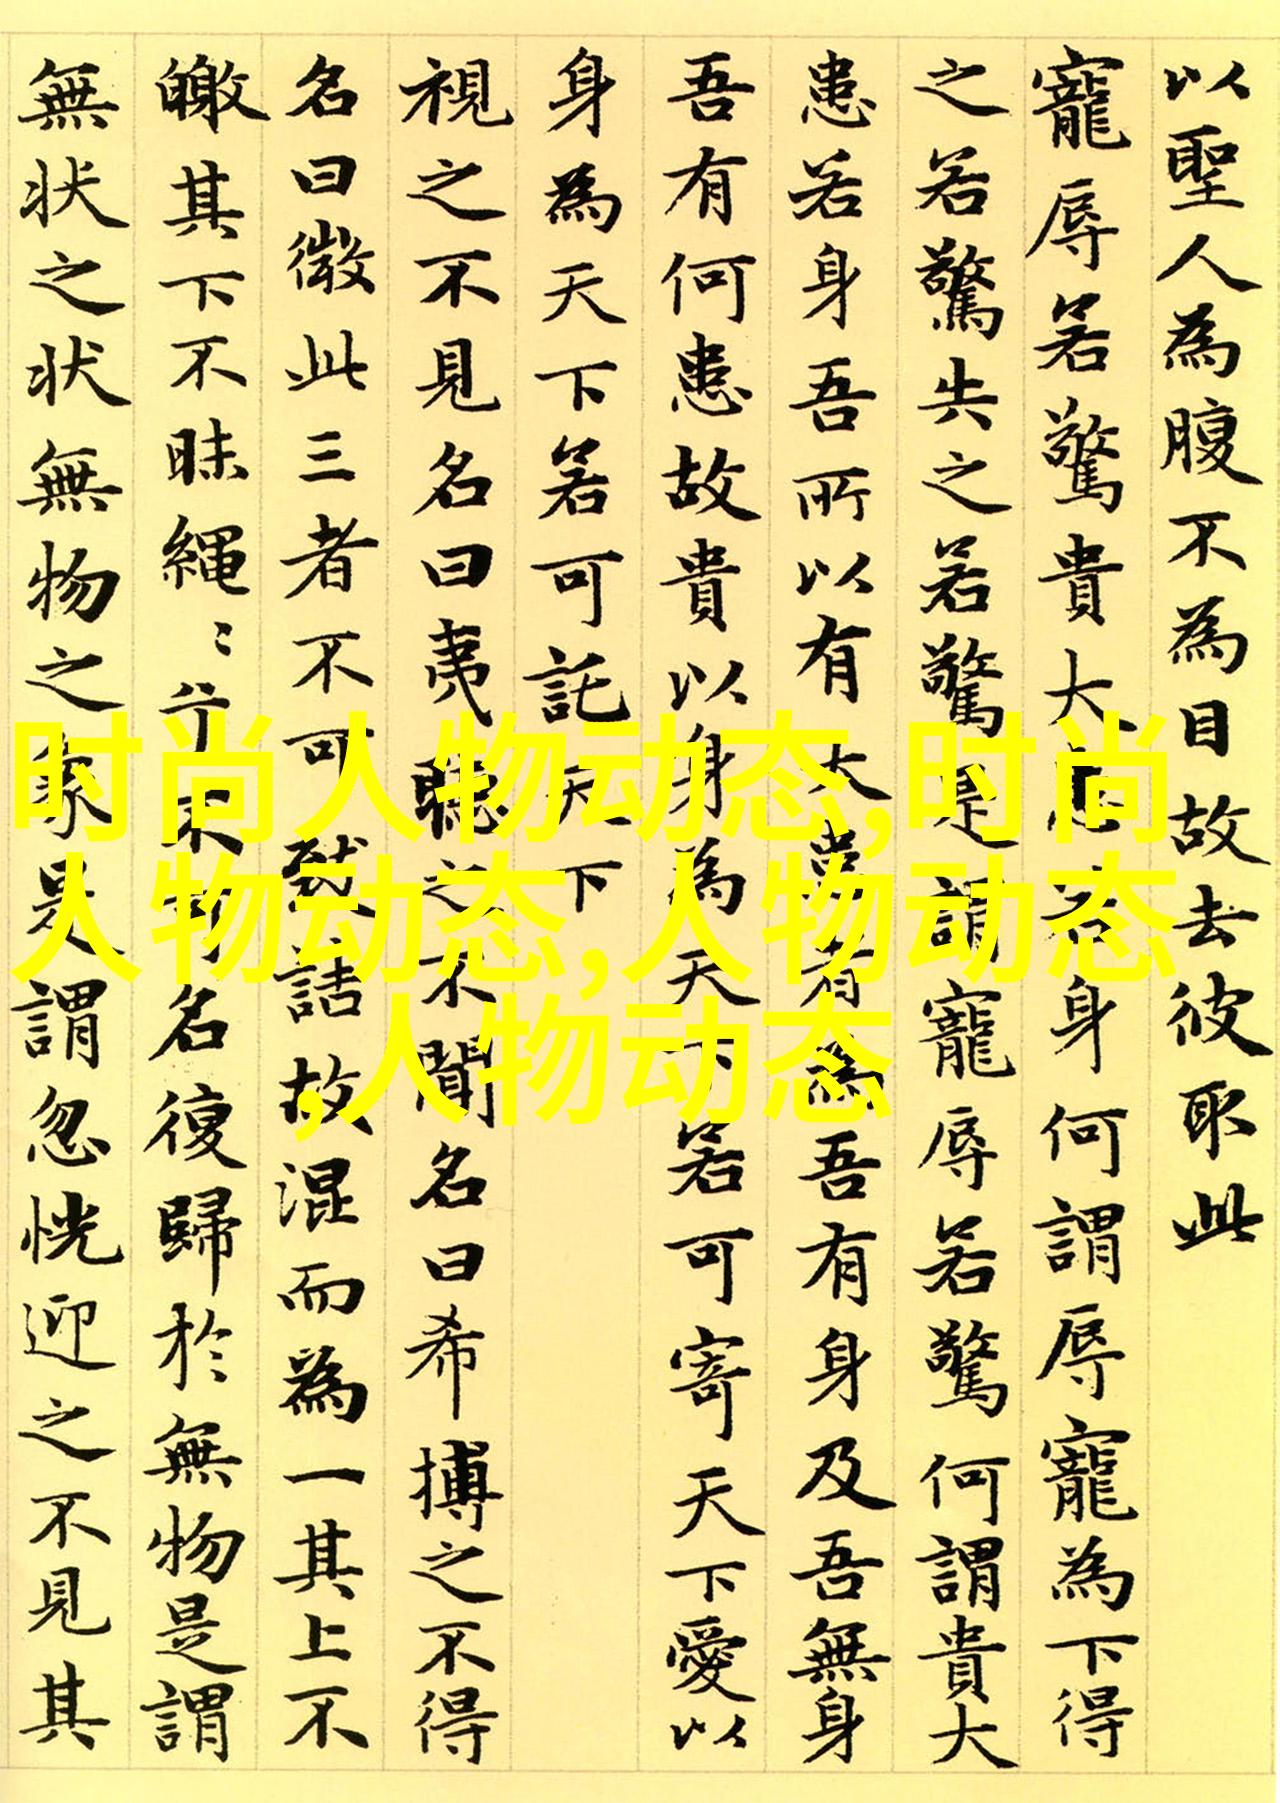 以聖人為腹不為目故去彼取此
寵辱若驚貴大患若身何謂辱寵為下得
之若驚失之若驚是謂寵辱若驚何謂貴大
患若身吾所以有大患者為吾有身及吾無身
吾有何患故貴以身為天下若可寄天下愛以
身為天下若可託天下
視之不見名曰夷聽之不聞名曰希搏之不得
名曰微此三者不可致詰故混而為一其上不
皦其下不昧繩〻兮不可名復歸於無物是謂
無状之状無物之象是謂忽恍迎之不見其
时尚人物动态,时尚
人物动态,人物动态
,人物动态